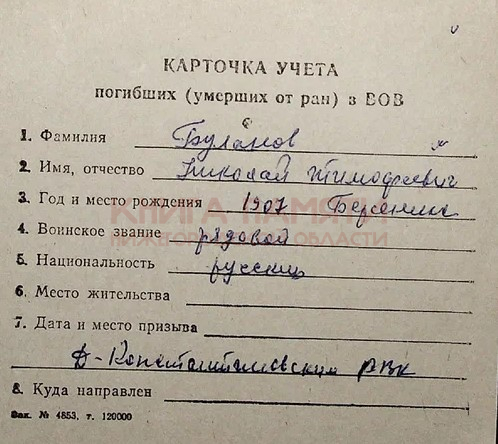 КАРТОЧКА УЧЕТА
погибших (умерших от ран) в ВОВ
1. Фамилия Буланов
2. Имя, отчество Николай Тимофеевич
3. Год и место рождения 1907
КНИГА ПАМЯТИ
4. Воинское звание рядовой
НИЖЕГОРОДСКОЙ ОБЛАСТИ
5. Национальность русский
6. Место жительства
7. Дата и место призыва
Д-Константиновским РВК
8. Куда направлен
Зак. № 4853, т. 120000